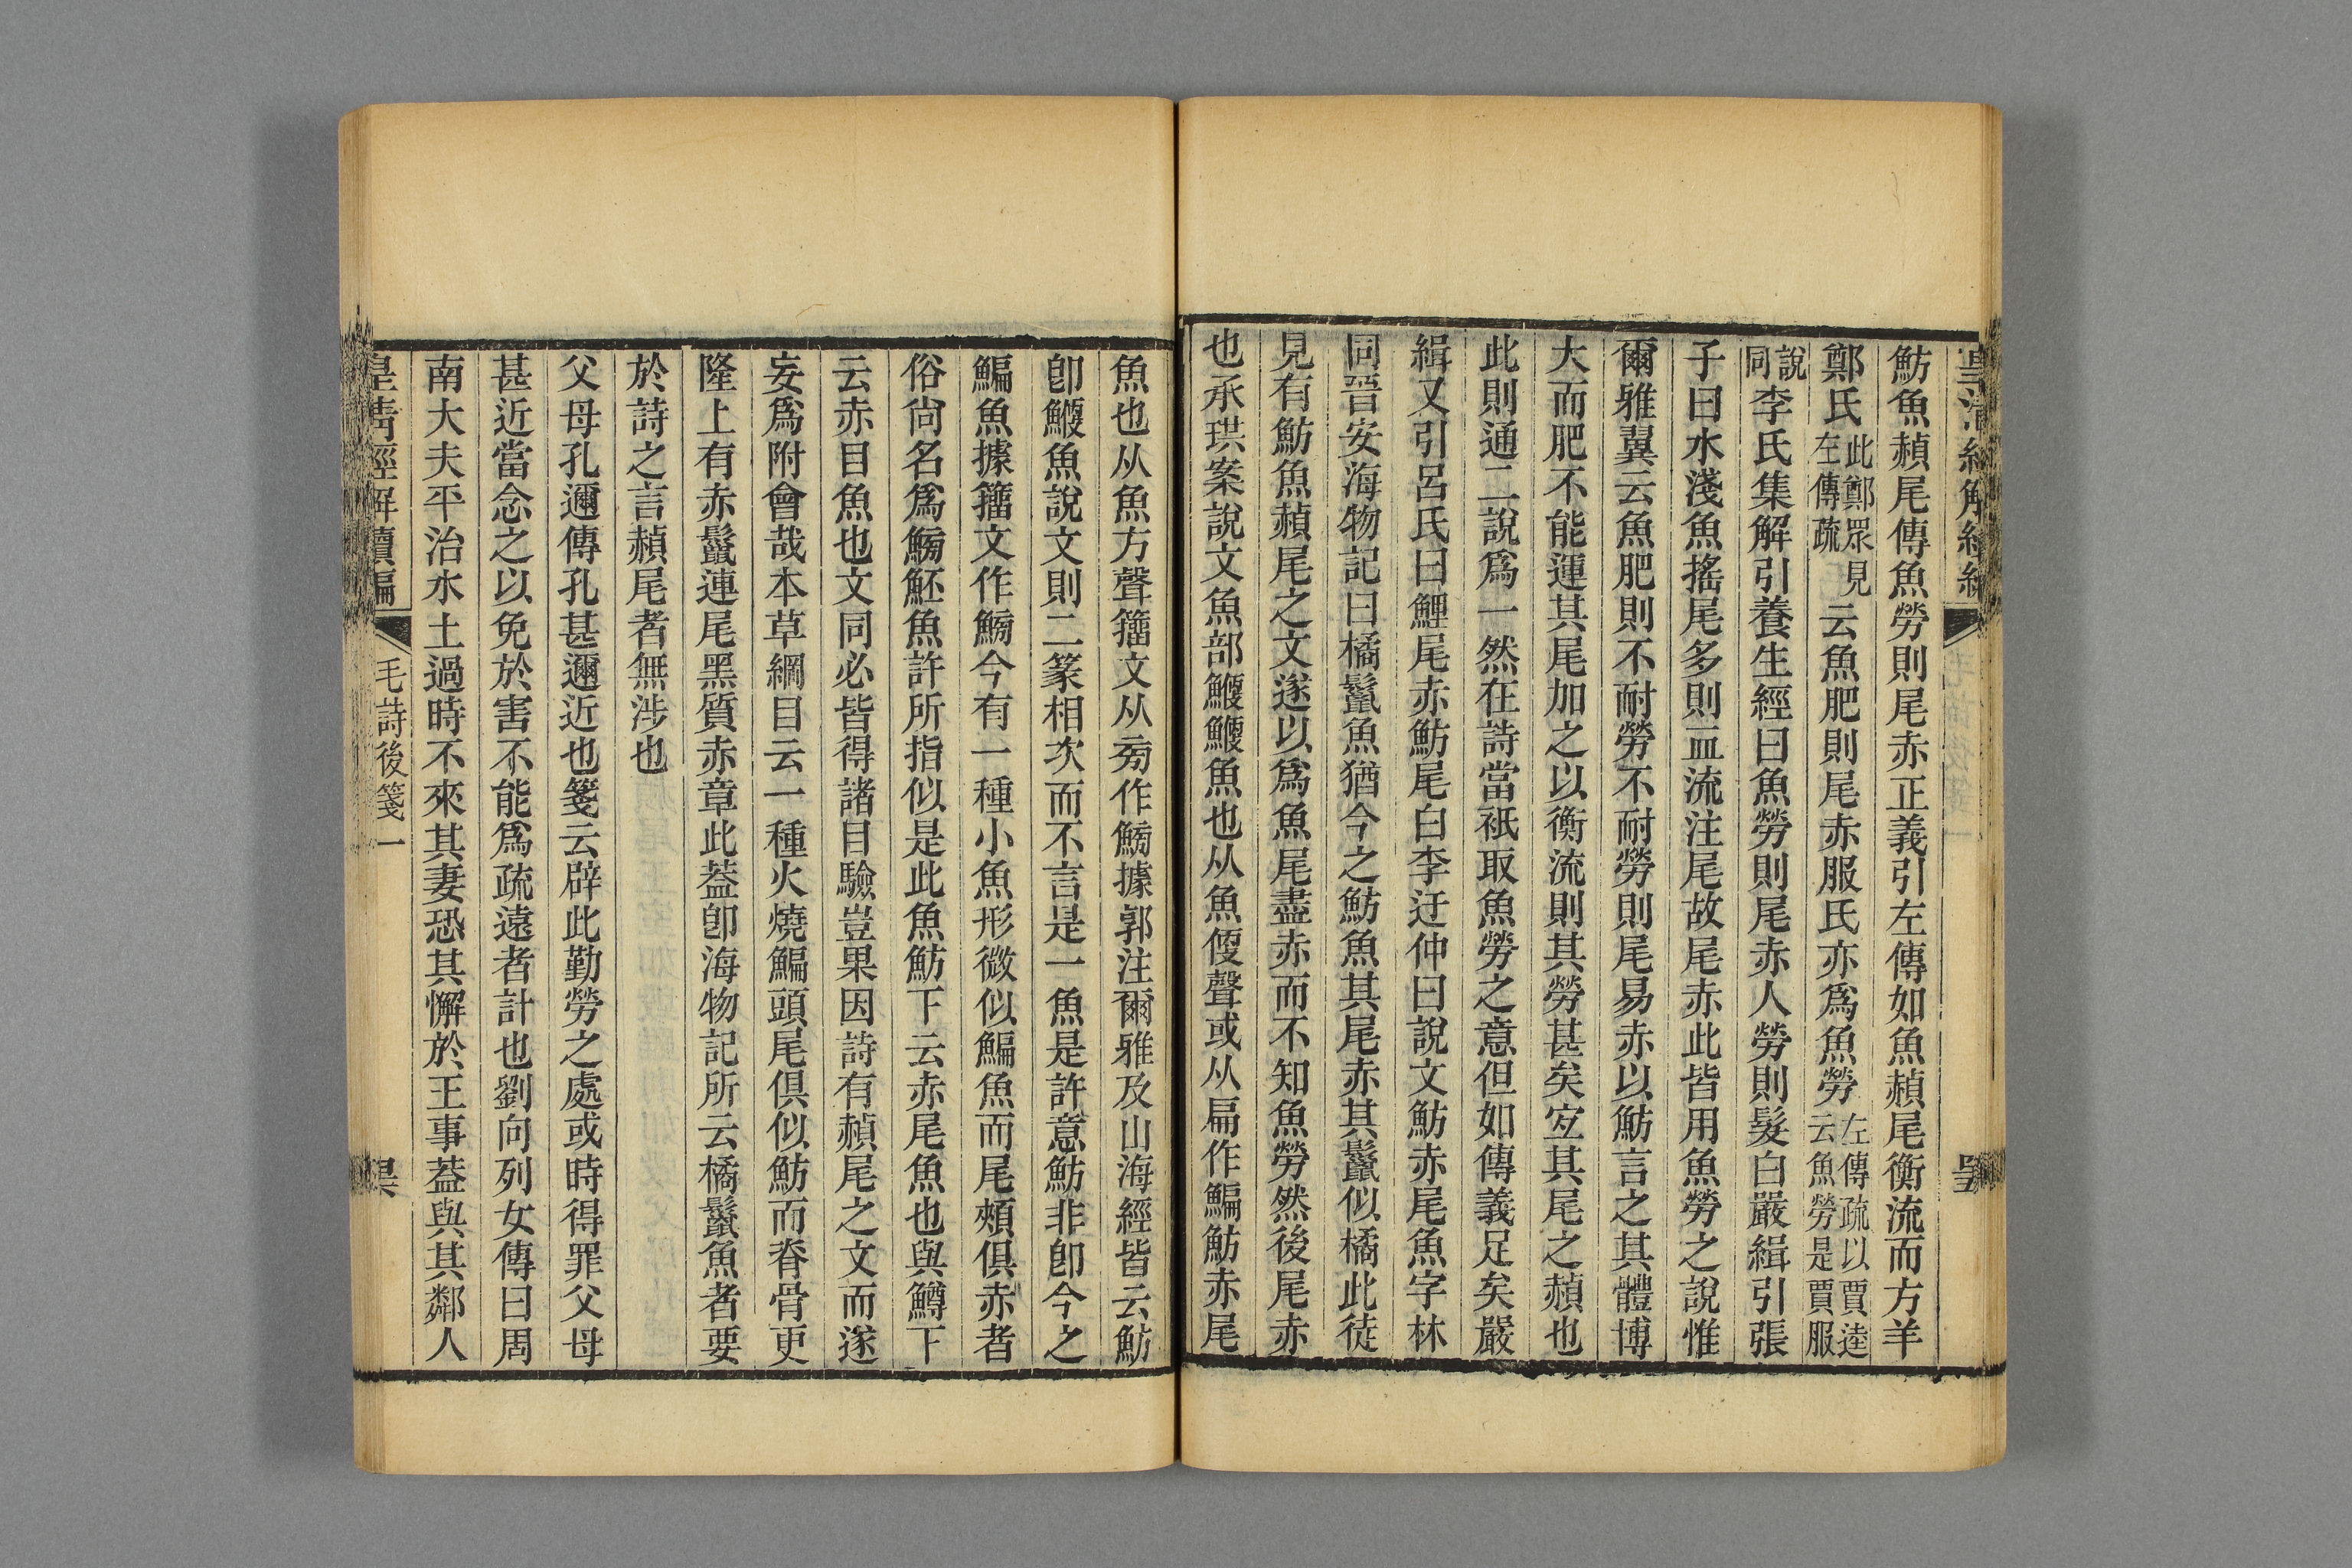 魴魚赬尾傳魚勞則尾赤正義引左傳如魚赬尾衡流而方羊
鄭氏此鄭眾見左傳疏云魚肥則尾赤服氏亦爲魚勞左傳疏以賈逵云魚勞是賈服
說同李氏集解引養生經曰魚勞則尾赤人勞則髮白嚴緝引張
子曰水淺魚搖尾多則血流注尾故尾赤此皆用魚勞之說惟
爾雅翼云魚肥則不耐勞不耐勞則尾易赤以魴言之其體博
大而肥不能運其尾加之以衡流則其勞甚矣宐其尾之赬也
此則通二說爲一然在詩當祇取魚勞之意但如傳義足矣嚴
緝又引呂氏曰鯉尾赤魴尾白李迂仲曰說文魴赤尾魚字林
同晉安海物記曰橘鬣魚猶今之魴魚其尾赤其鬣似橘此徒
見有魴魚赬尾之文遂以爲魚尾盡赤而不知魚勞然後尾赤
也承珙案說文魚部鯾鯾魚也从魚㛹聲或从扁作鯿魴赤尾
魚也从魚方聲籀文从㫄作鰟據郭注爾雅及山海經皆云魴
卽鯾魚說文則二篆相次而不言是一魚是許意魴非卽今之
鯿魚據籀文作鰟今有一種小魚形微似鯿魚而尾頰俱赤者
俗尙名爲鰟魾魚許所指似是此魚魴下云赤尾魚也與鱒下
云赤目魚也文同必皆得諸目驗豈果因詩有赬尾之文而遂
妄爲附會哉本草綱目云一種火燒鯿頭尾俱似魴而脊骨更
隆上有赤鬣連尾黑質赤章此葢卽海物記所云橘鬣魚者要
於詩之言赬尾者無涉也
父母孔邇傳孔甚邇近也箋云辟此勤勞之處或時得罪父母
甚近當念之以免於害不能爲疏遠者計也劉向列女傳曰周
南大夫平治水土過時不來其妻恐其懈於王事葢與其鄰人
皇淸經解續編
毛詩後箋一